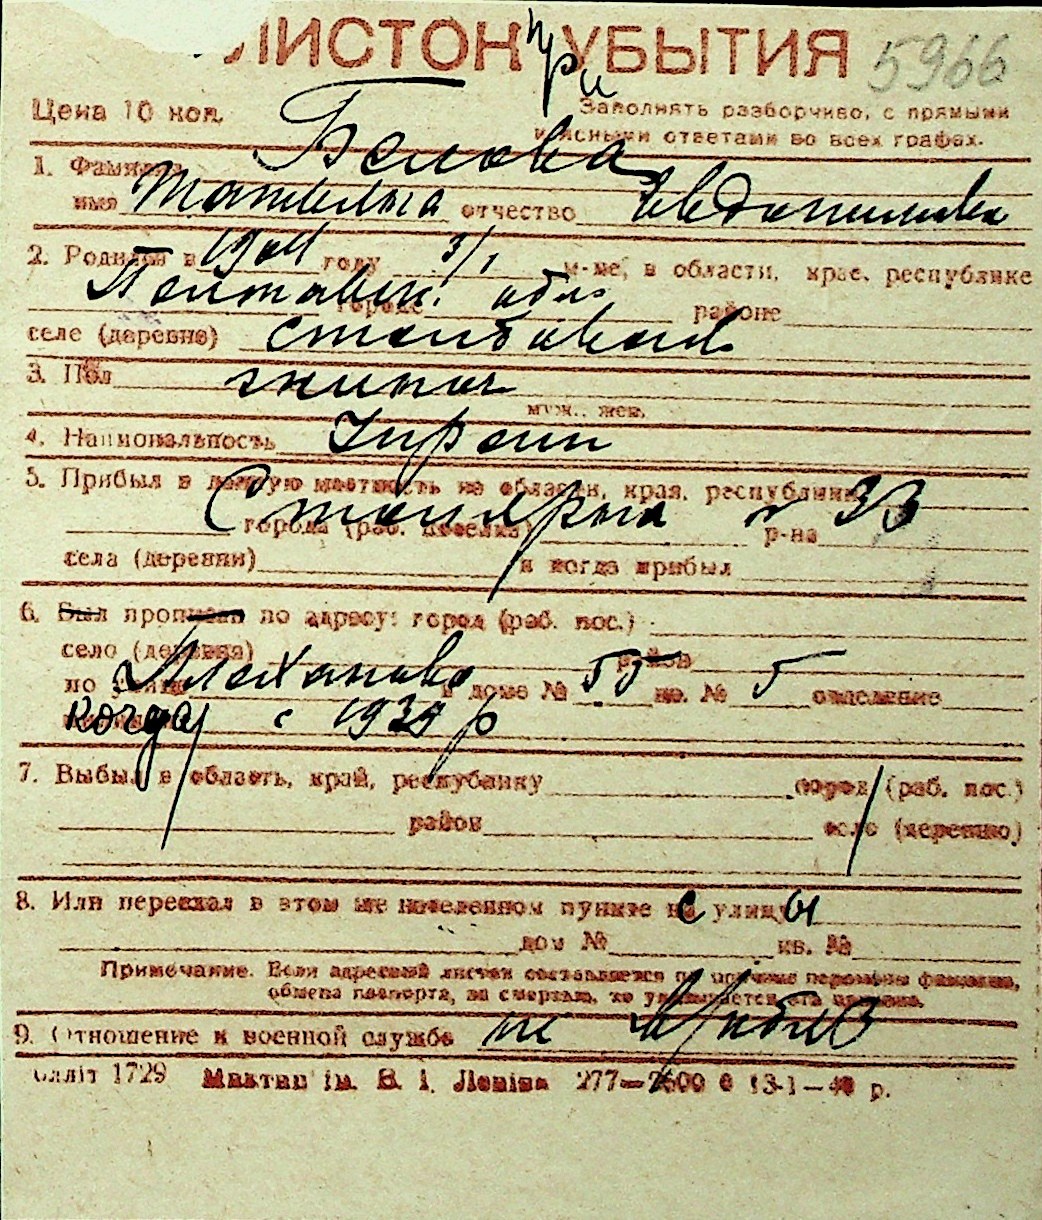 ЛИСТОК при УБЫТИЯ 5966
Цена 10 коп. Заполнять разборчиво, с прямыми
и ясными ответами во всех графах.
1. Фамилия Белова
имя Татьяна отчество Евдокимовна
2. Родился в 1904 году 3/1 м-це, в области, крае, республике
Полтавск. обл. городе районе
селе (деревне)
3. Пол женск
муж., жен.
4. Национальность Украин
5. Прибыл в данную местность из области, края, республики
города (раб. поселка) р-на
села (деревни) и когда прибыл
6. Был прописан по адресу: город (раб. пос.)
село (деревня) район
по улице Плеханова в доме № 55 кв. № 5 отделение
когда с 1939 р
7. Выбыл в область, край, республику город (раб. пос.)
район село (деревню)
8. Или переехал в этом же населенном пункте на с улицу ы
дом № кв. №
Примечание. Если адресный листок составляется по причине перемены фамилии,
обмена паспорта, за смертью, то указывается эта причина.
9. Отношение к военной службе не
Оллiт 1729 iм. В. I. Ленiна 277—7500 13-1—40 р.